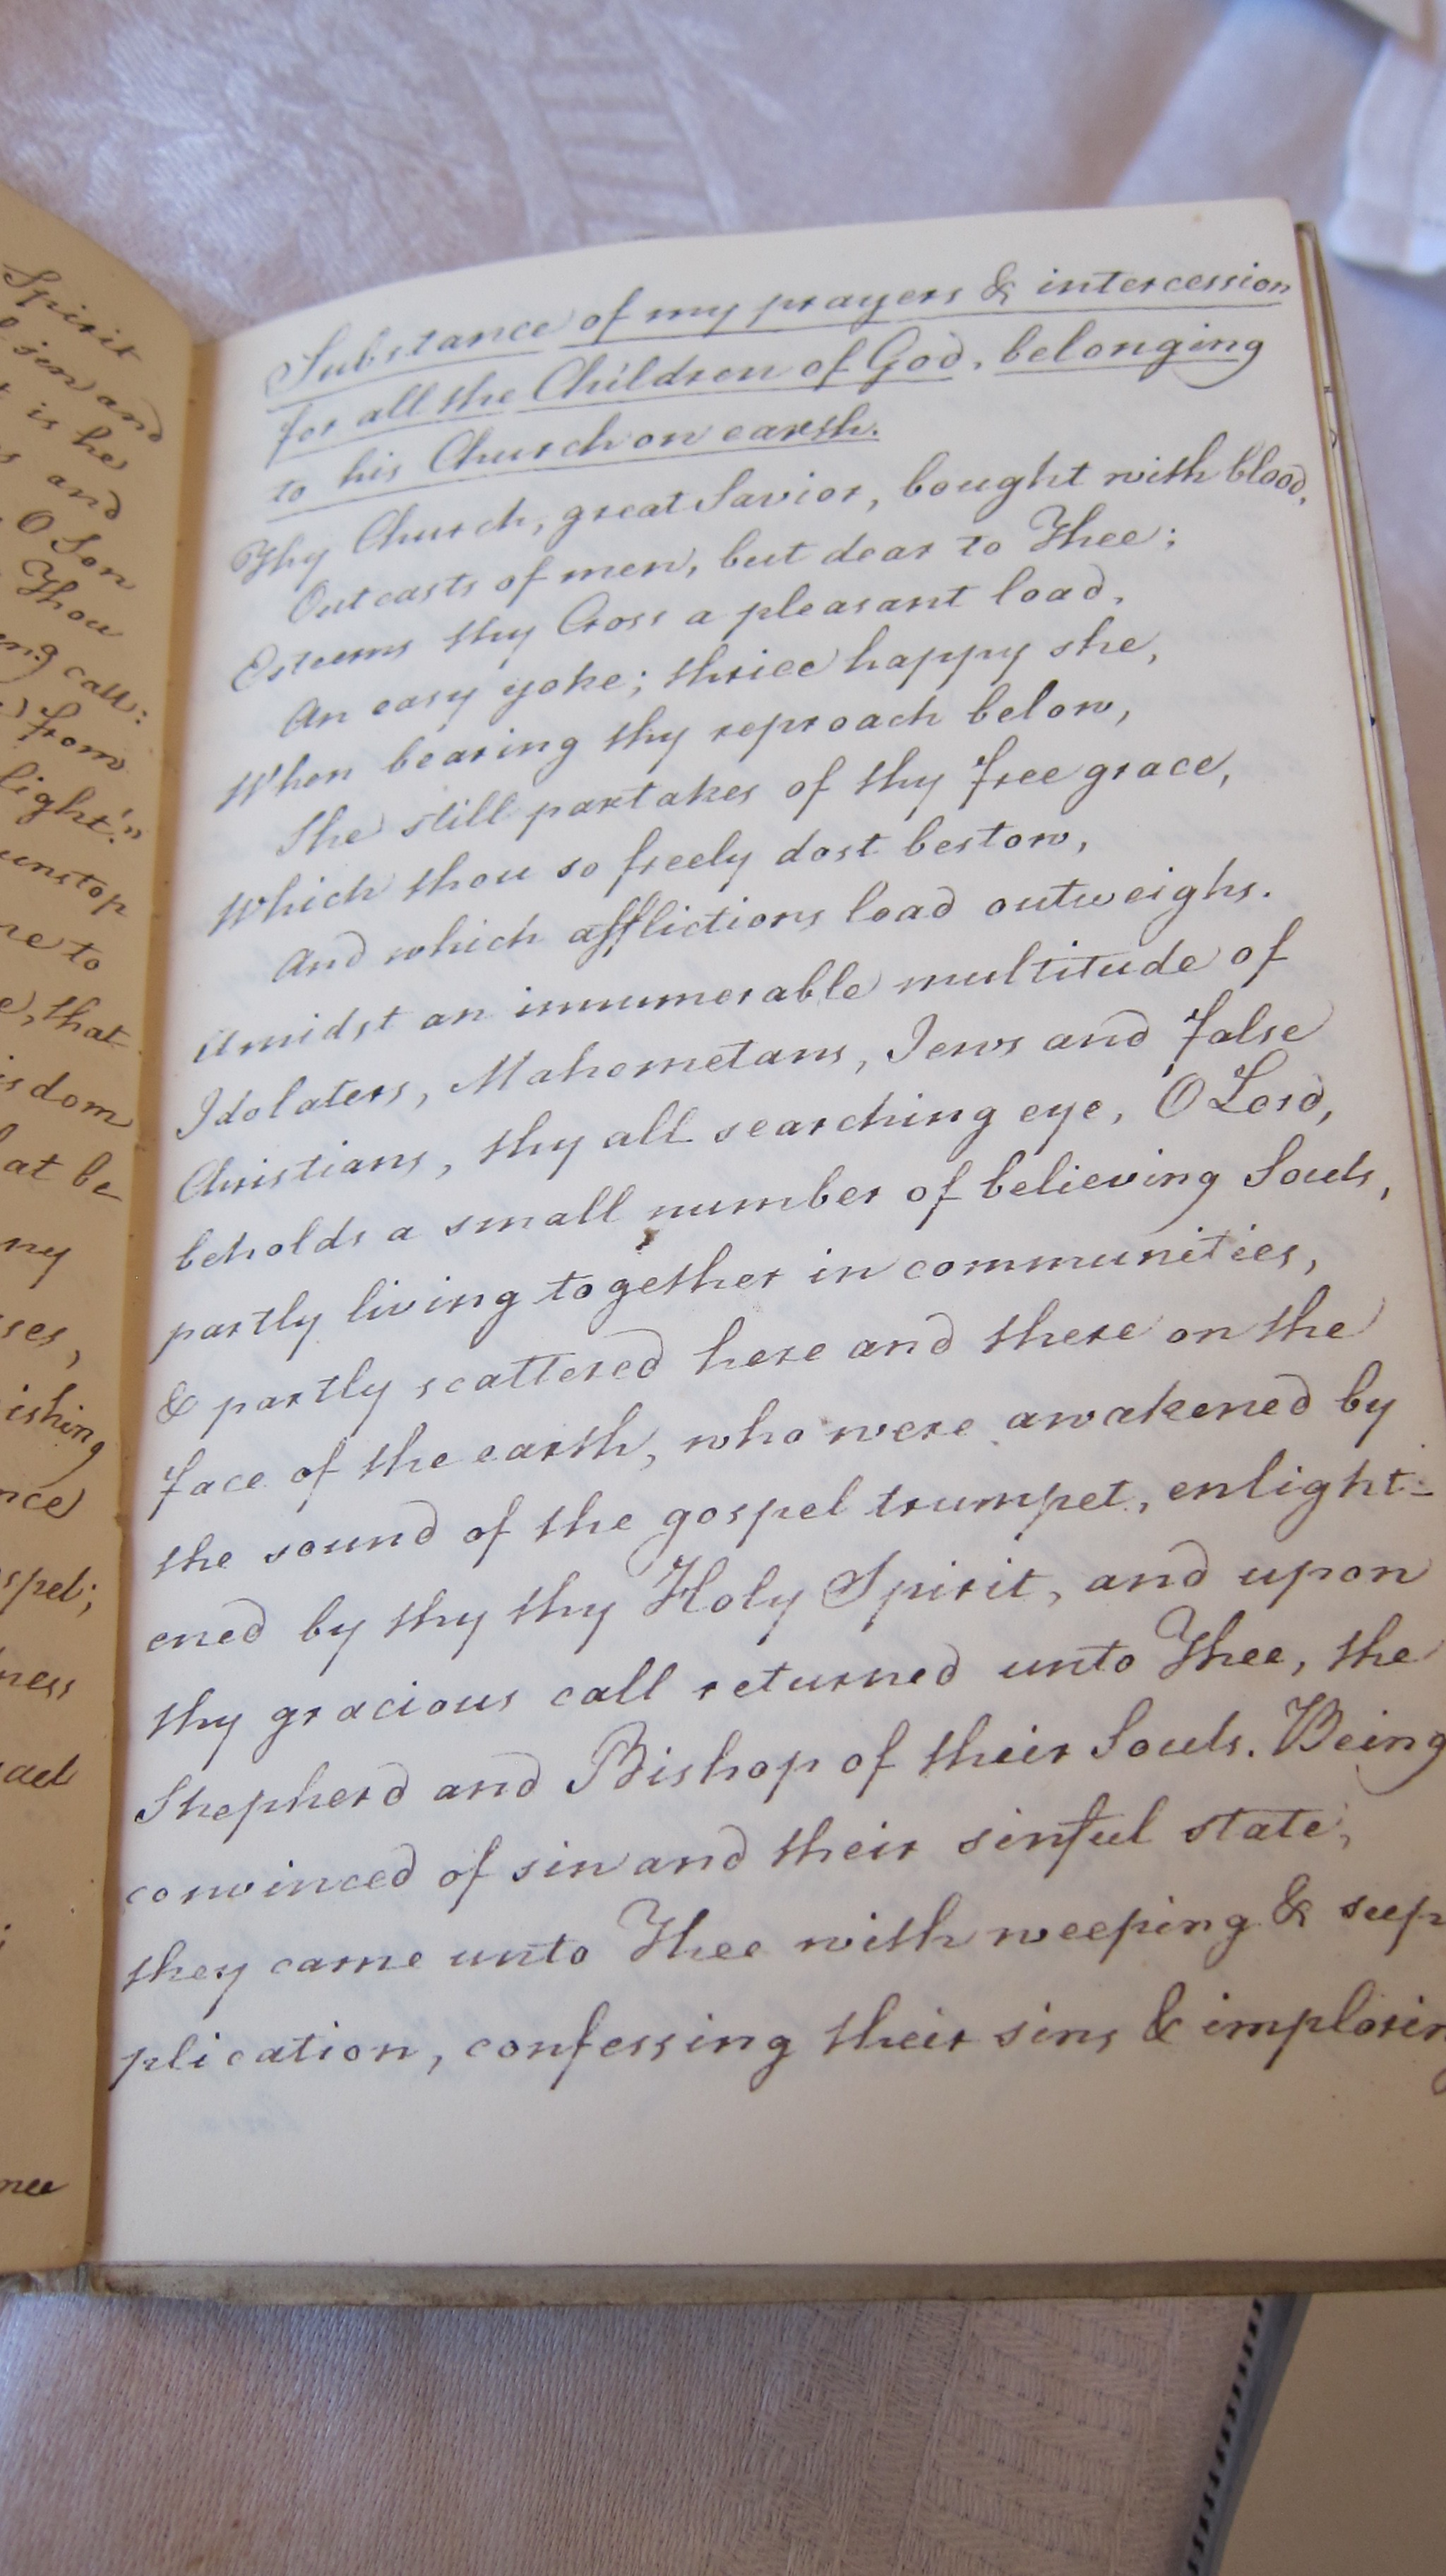 Spirit
sin and
is he
and
O Son
Thou
call:
from
light!"
unstop
to
that
be
ny
Substance of my prayers & intercession
for all the Children of God, belonging
to his Church on earth.
Thy Church, great Savior, bought with blood,
Outcasts of men, but dear to Thee;
Esteems thy Cross a pleasant load,
An easy yoke; thrice happy she,
When bearing thy reproach below,
She still partakes of thy free grace,
Which thou so freely dost bestow,
And which afflictions load outweighs.
Amidst an innumerable multitude of
Idolaters, Mahometans, Jews and false
Christians, thy all searching eye, O Lord,
beholds a small number of believing Souls,
partly living together in communities,
& partly scattered here and there on the
face of the earth, who were awakened by
the sound of the gospel trumpet, enlight-
ened by thy thy Holy Spirit, and upon
thy gracious call returned unto Thee, the
Shepherd and Bishop of their Souls. Being
convinced of sin and their sinful state,
they came unto Thee with weeping & sup
plication, confessing their sins & implorin